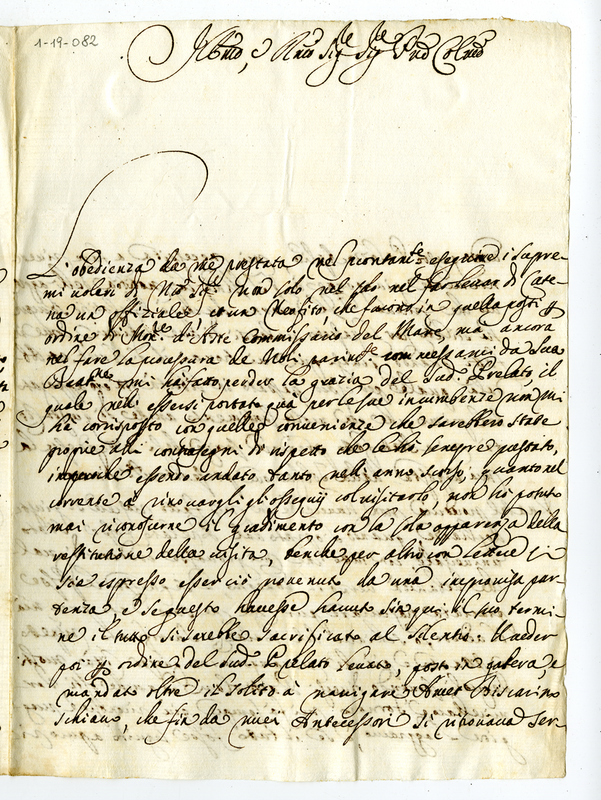 1-19-082
Ill.mo, e R.mo Sig.re Sig.re P.rone Col.mo
L'obedienza da me prestata nel prontam.te eseguire i supre-
mi voleri di N.ro Sig.re non solo nel far levar di Cate-
na un offiziale, et un Neofito, che furono in quella posti p
ordine di Mons.r d'Aste Commissario del Mare, ma ancora
nel fare la procedura de Mori parim.te da Sua
Beat.ne mi hà fatto perder la grazia del Sud.o Prelato, il
quale nell'essersi portato quà per le sue incumbenze non mi
hà corrisposto con quelle convenienze che sarebbero state
proprie alli contrasegni di rispetto che le hò sempre prestato,
imperoche essendo andato tanto nell'anno scorso, quanto nel
corrente à rinovargli gl'ossequij col visitarlo, non hò potuto
mai riconoscerne il gradimento con la sola apparenza della
restituzione della visita, benche per altro con lettere si
sia espresso esserciò provenuto da una improvisa par-
tenza, e se questo havesse havuto sin qui il suo termi-
ne il tutto si sarebbe sacrificato al silentio. Il veder
poi p ordine del Sud.o Prelato levato, posto in galera, e
mandato oltre il solito à navigare Amet Biscarino
schiavo, che fin da miei Antecessori si ritrovava ser-